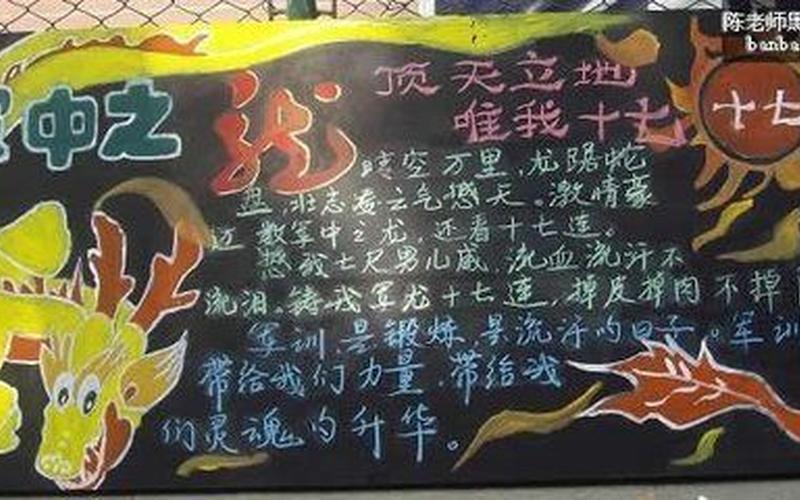 陈老师
banba
军中之龙
顶天立地
唯我十七
十七
时空万里，龙踞蛇
盘，壮志凌云气撼天。激情豪
迈，数军中之龙，还看十七连。
憋我七尺男儿威，流血流汗不
流泪。铸我军龙十七连，掉皮掉肉不掉
军训，是锻炼，是流汗的日子。军训
带给我们力量，带给我
们灵魂的升华。